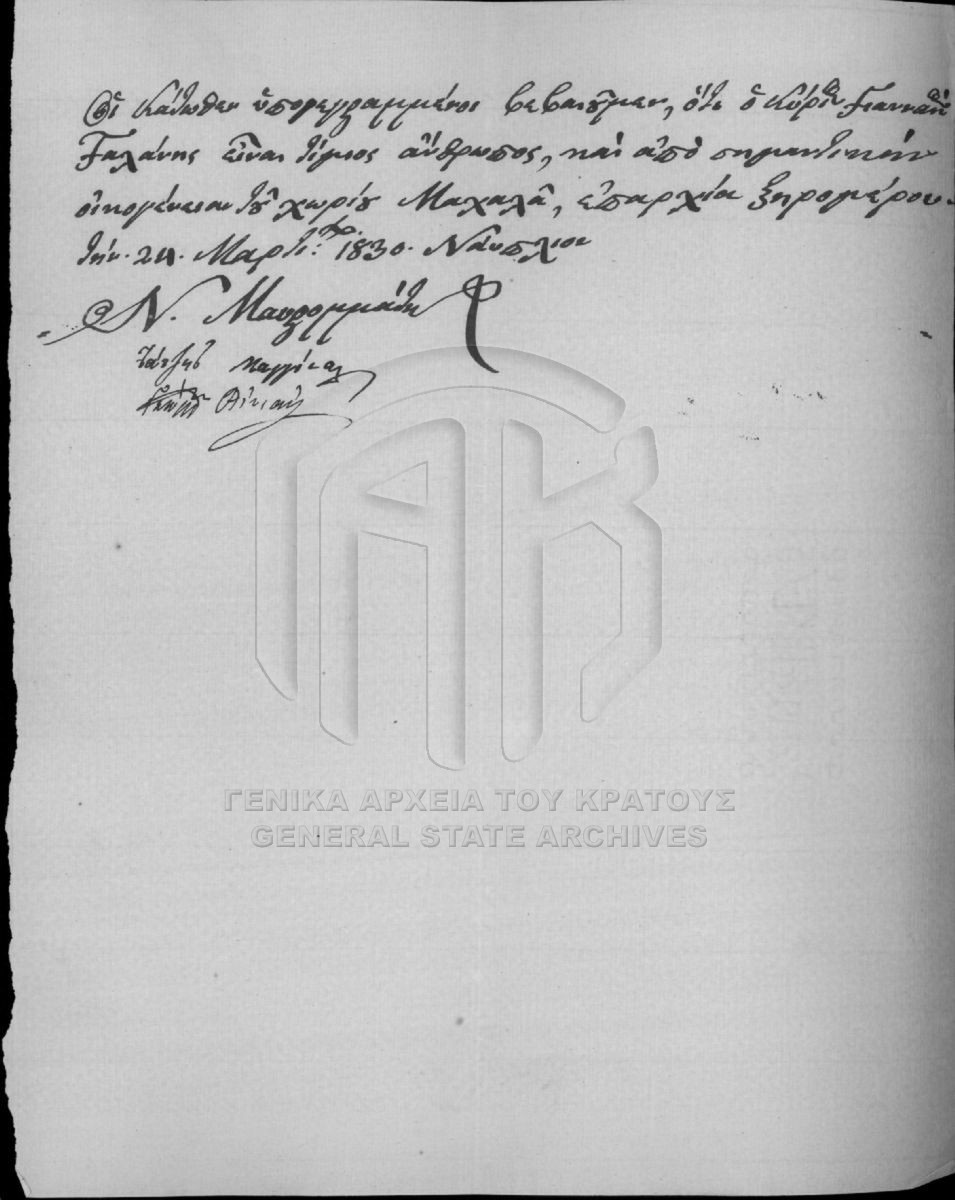 Οἱ κάτωθεν ὑπογεγραμμένοι βεβαιοῦμεν, ὅτι ὁ Κύριος Γιαννάκης
Γαλάνης εἶναι τίμιος ἄνθρωπος, καὶ ἀπὸ σημαντικὴν
οἰκογένειαν τοῦ χωρίου Μαχαλᾶ, ἐπαρχία Ξηρομέρου.
τὴν. 24. Μαρτ: 1830. Ναύπλιον
Ν. Μαυρομμάτης
ΓΕΝΙΚΑ ΑΡΧΕΙΑ ΤΟΥ ΚΡΑΤΟΥΣ
GENERAL STATE ARCHIVES